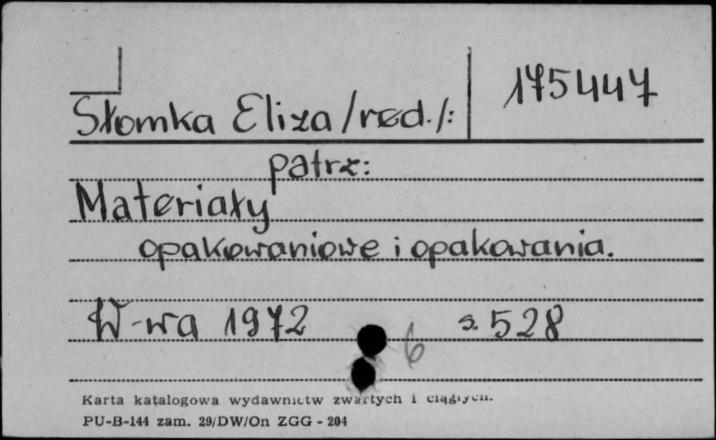 175447
Słomka Eliza /red./:
patrz:
Materiały
opakowaniowe i opakowania.
W-wa 1972 6 s. 528
Karta katalogowa wydawnictw zwartych i ciągłych.
PU-B-144 zam. 29/DW/On ZGG - 204